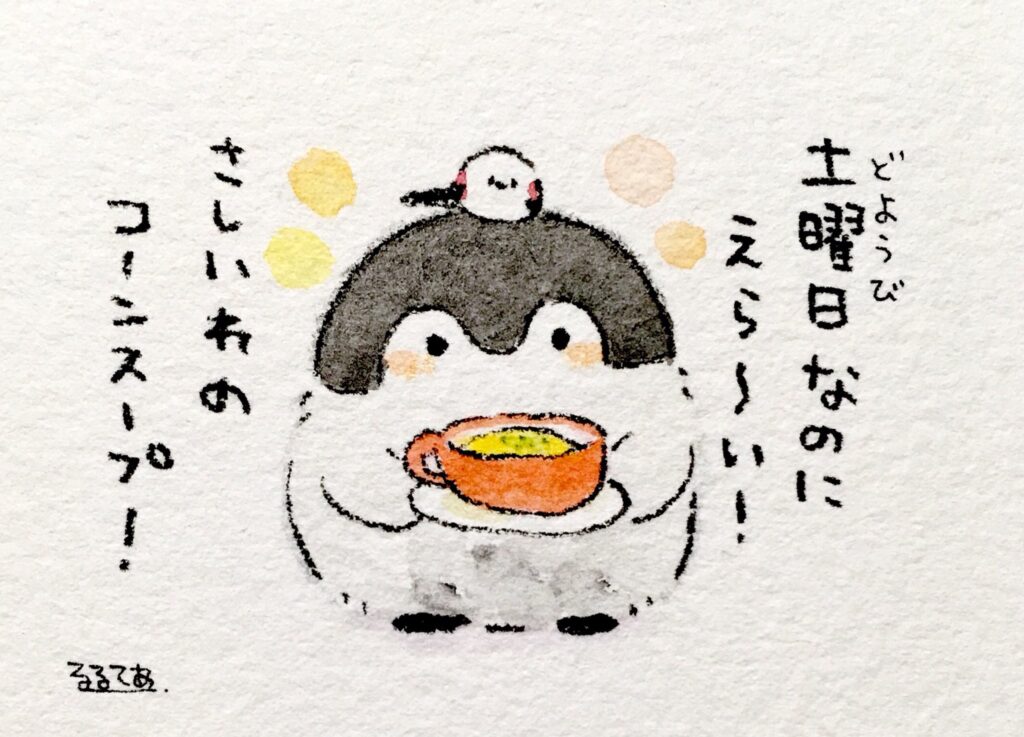 土曜日なのに
どようび
えら〜い!
さいしわの
コーンスープ!
るるてあ.